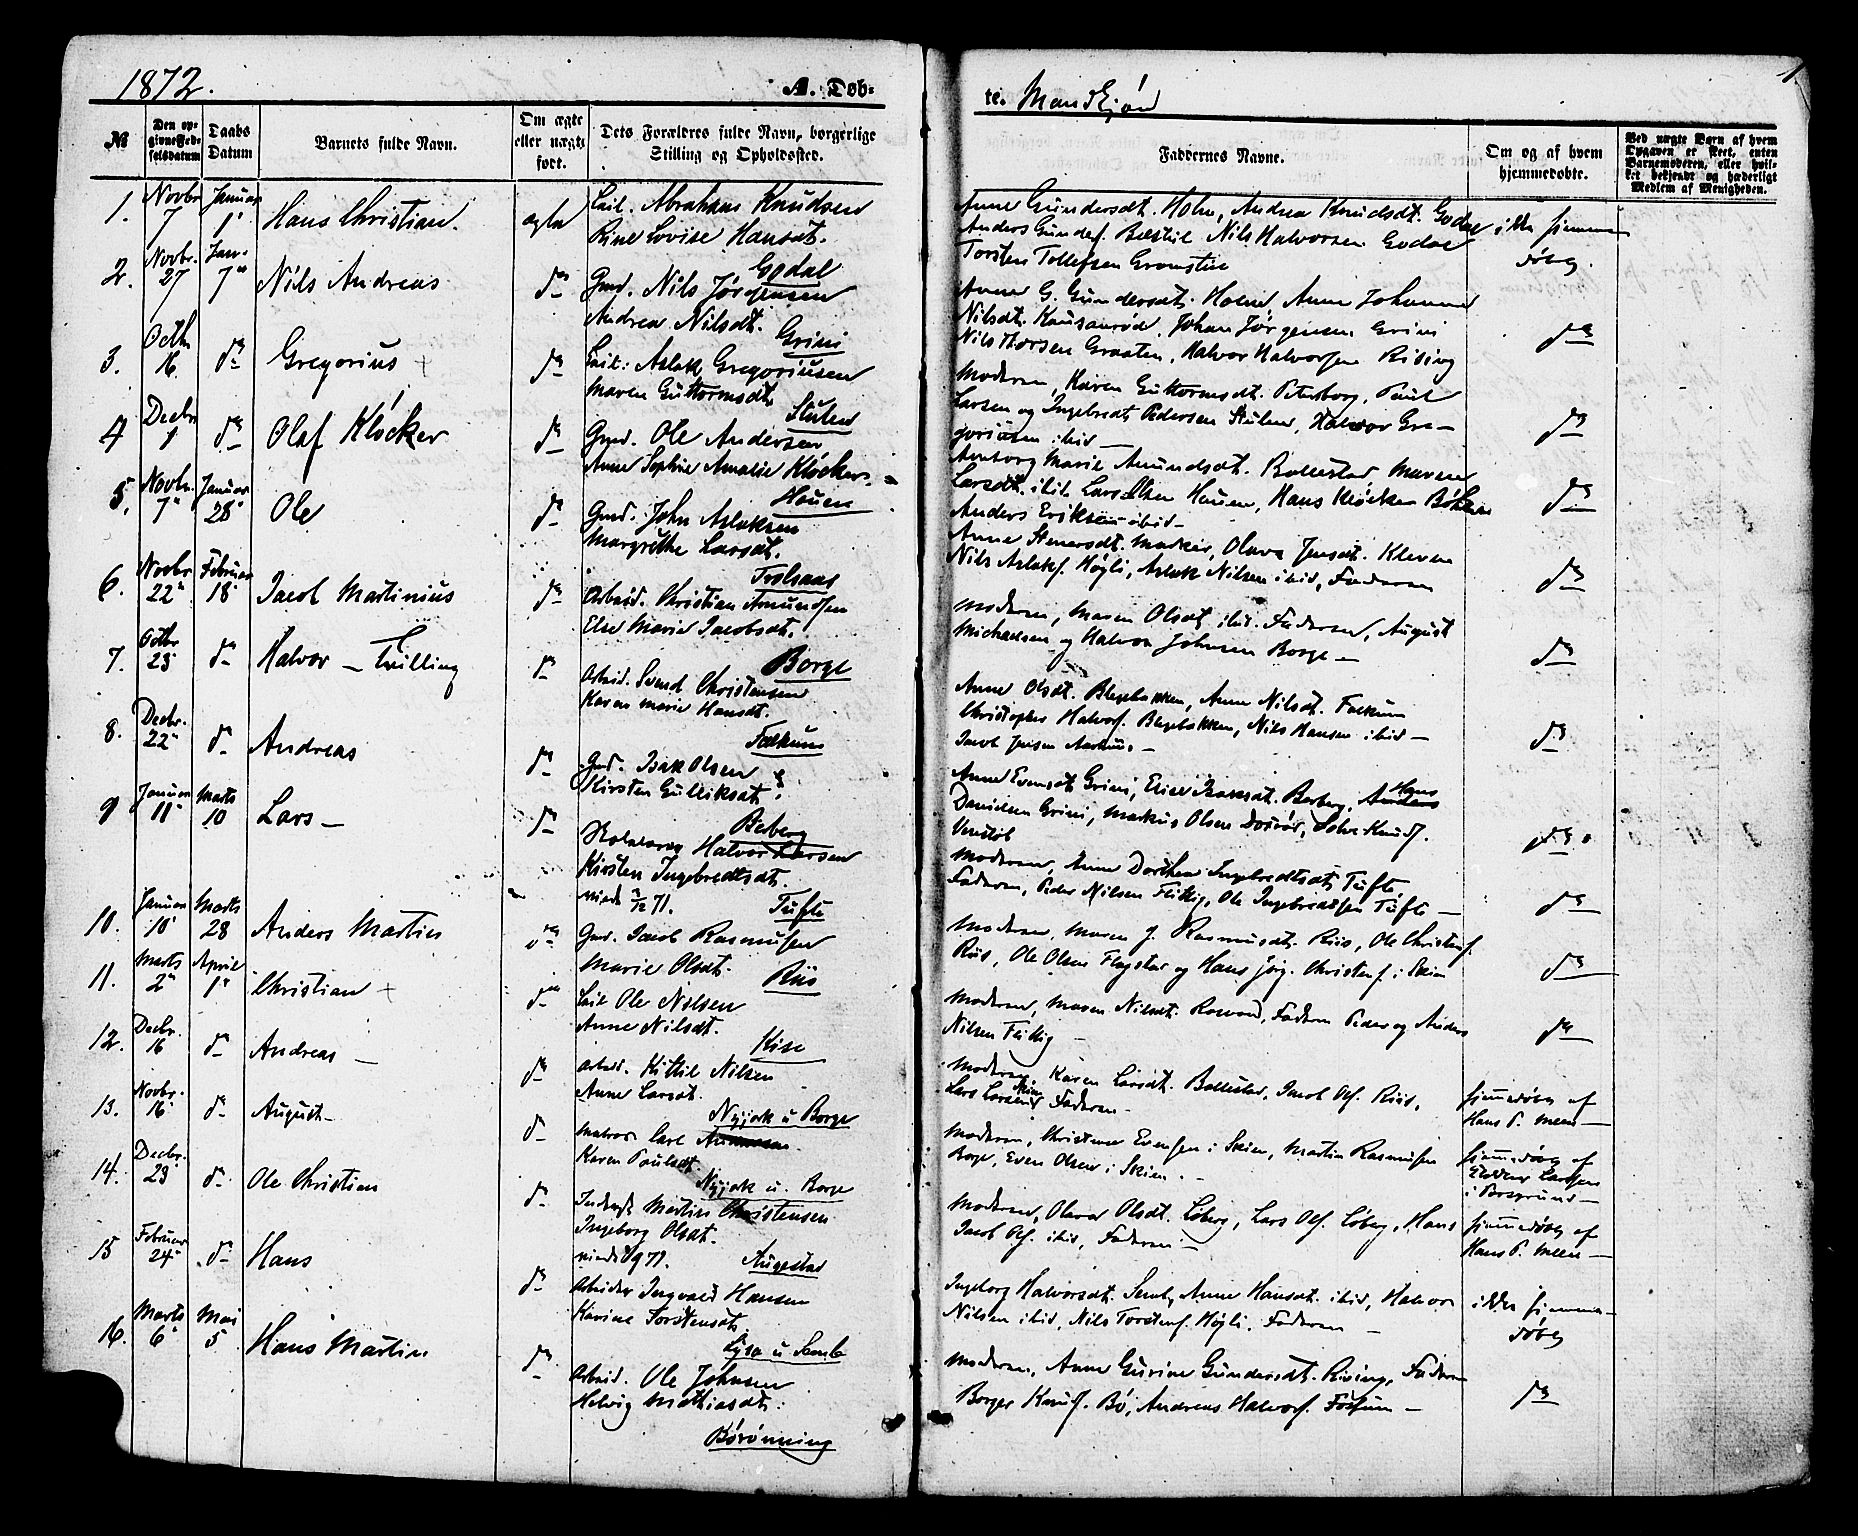 1872.
A. Døb-
te. Mandkjøn
1
№
Den op-
givne Fød-
selsdatum
Daabs
Datum
Barnets fulde Navn.
Om ægte
eller uægte
født.
Dets Forældres fulde Navn, borgerlige
Stilling og Opholdssted.
Faddernes Navne.
Om og af hvem
hjemmedøbte.
Ved uægte Barn af hvem
Opgaven er skeet, enten
Barnemoderen, eller hvil-
ket bekjendt og hæderligt
Medlem af Menigheden.
1. Novbr 7 Januar 1 Hans Christian. ægte Abraham Knudsen
Rine Lovise Hansdt.
Godal
Anne Gundersdt. Holm, Andrea Knudsdt. Godal
Anders Gunders. Nils Halvorsen Godal
Torsten Tollefsen
ikke hjemme
døbt.
2. Novbr. 27 Jan. 7 Nils Andreas do Gmd. Nils Jørgensen
Andrea Nilsdt.
Grini
Anne G. Gundersdt. Holm Anne Johanne
Nilsdt. Johan Jørgensen Grini
Nils Thorsen Graaten, Halvor Halvorsen Rising
do
3. Octbr 16 do Gregorius + do Aslak Gregoriusen
Maren Guttormsdt.
Stulen
Moderen, Karen Guttormsdt. Petersborg, Poul
Larsen og Ingebredt Pedersen Stulen, Halvor Gre-
goriusen ibid
do
4 Decbr 1 do Olaf Kløcker do Gmd. Ole Andersen
Anne Sophie Amalie Kløcker
Houen
Marie Amundsdt. Bollestad, Maren
Larsdt. ibid. Lars Olsen Houen, Hans Kløcker
Anders Eriksen ibid
do
5. Novbr. 7 Januar 28 Ole do Gmd. John Aslaksen
Margrethe Larsdt.
Anne Stenersdt. Olava Jensdt. Kleven
Nils Aslaks. Høgli, Aslak Nilsen ibid, Faderen
do
6. Novbr 22 Februar 18 Jacob Martinius do Arbeid. Christian Amundsen
Else Marie Jacobsdt.
Borge
Moderen, Maren Olsdt. ibid. Faderen, August
Michaelsen og Halvor Johnsen Borge
do
7. Octbr 23 do Halvor – Tvilling do Arbeid. Svend Christensen
Karen Marie Hansdt.
Falkum
Anne Olsdt. Blegebakken, Anne Nilsdt. Falkum
Christopher Halvors. Blegebakken, Nils Hansen ibid
Jacob Jensen
do
8. Decbr. 22 do Andreas do Gmd. Isak Olsen
Kirsten Gulliksdt.
Berberg
Anne Evensdt. Grini, Isaksdt. Berberg, Anders Hans
Danielsen Grini, Markus Olsen Knuds.
Venstøb
do
9 Januar 11 Marts 10 Lars – do Halvor Larsen
Kirsten Ingebredtsdt.
viede 71.
Tufte
Moderen, Anne Dorthea Ingebredtsdt. Tufte,
Faderen, Peder Nilsen Flittig, Ole Ingebredtsen Tufte
do
10. Januar 10 Marts 28 Anders Martin do Gmd. Jacob Rasmussen
Marie Olsdt.
Riis
Moderen, Maren J. Rasmusdt. Riis, Ole Christens.
Riis, Ole Olsen Flagstad og Hans Jørg. Christens. i Skien
do
11. Marts 2 April 1 Christian + do Ole Nilsen
Anne Nilsdt.
Kise
Moderen, Maren Nilsdt. Faderen Peder og Anders
Nilsen Flittig
do
12. Decbr. 16 do Andreas – do Arbeid. Kittil Nilsen
Anne Larsdt.
Nyjork u Borge
Moderen Karen Larsdt. Bollestad, Jacob Ols. Riis,
Lars Larsen Skien Faderen
hjemmedøbt af
Hans P. Meen
13. Novbr. 16 do August do Matros Carl
Karen Poulsdt.
Nyjork u. Borge
Moderen, Christine Evensen i Skien, Martin Rasmussen
Borge, Even Olsen i Skien.
hjemmedøbt af
Larsen
i Porsgrund
14. Decbr. 23 do Ole Christian do Inderst Martin Christensen
Ingeborg Olsdt.
viede 71.
Augestad
Moderen, Olava Olsdt. Løberg, Lars Ols. Løberg, Hans
Jacob Ols. ibid, Faderen
hjemmedøbt af
Hans P. Meen
15 Februar 24 do Hans do Arbeider Ingvald Hansen
Karine Torstensdt.
u Semb
Ingeborg Halvorsdt. Semb, Anne Hansdt. ibid, Halvor
Nilsen ibid, Nils Torstens. Høgli, Faderen
ikke hjemme-
døbt
16. Marts 6 Mai 5 Hans Martin do Arbeid. Ole Johnsen
Helvig Mathiasdt.
Børønning
Moderen, Anne Gurine Gundersdt. Rising, Faderen
Borger Knuds. Bø, Andreas Halvors. Fossum
do